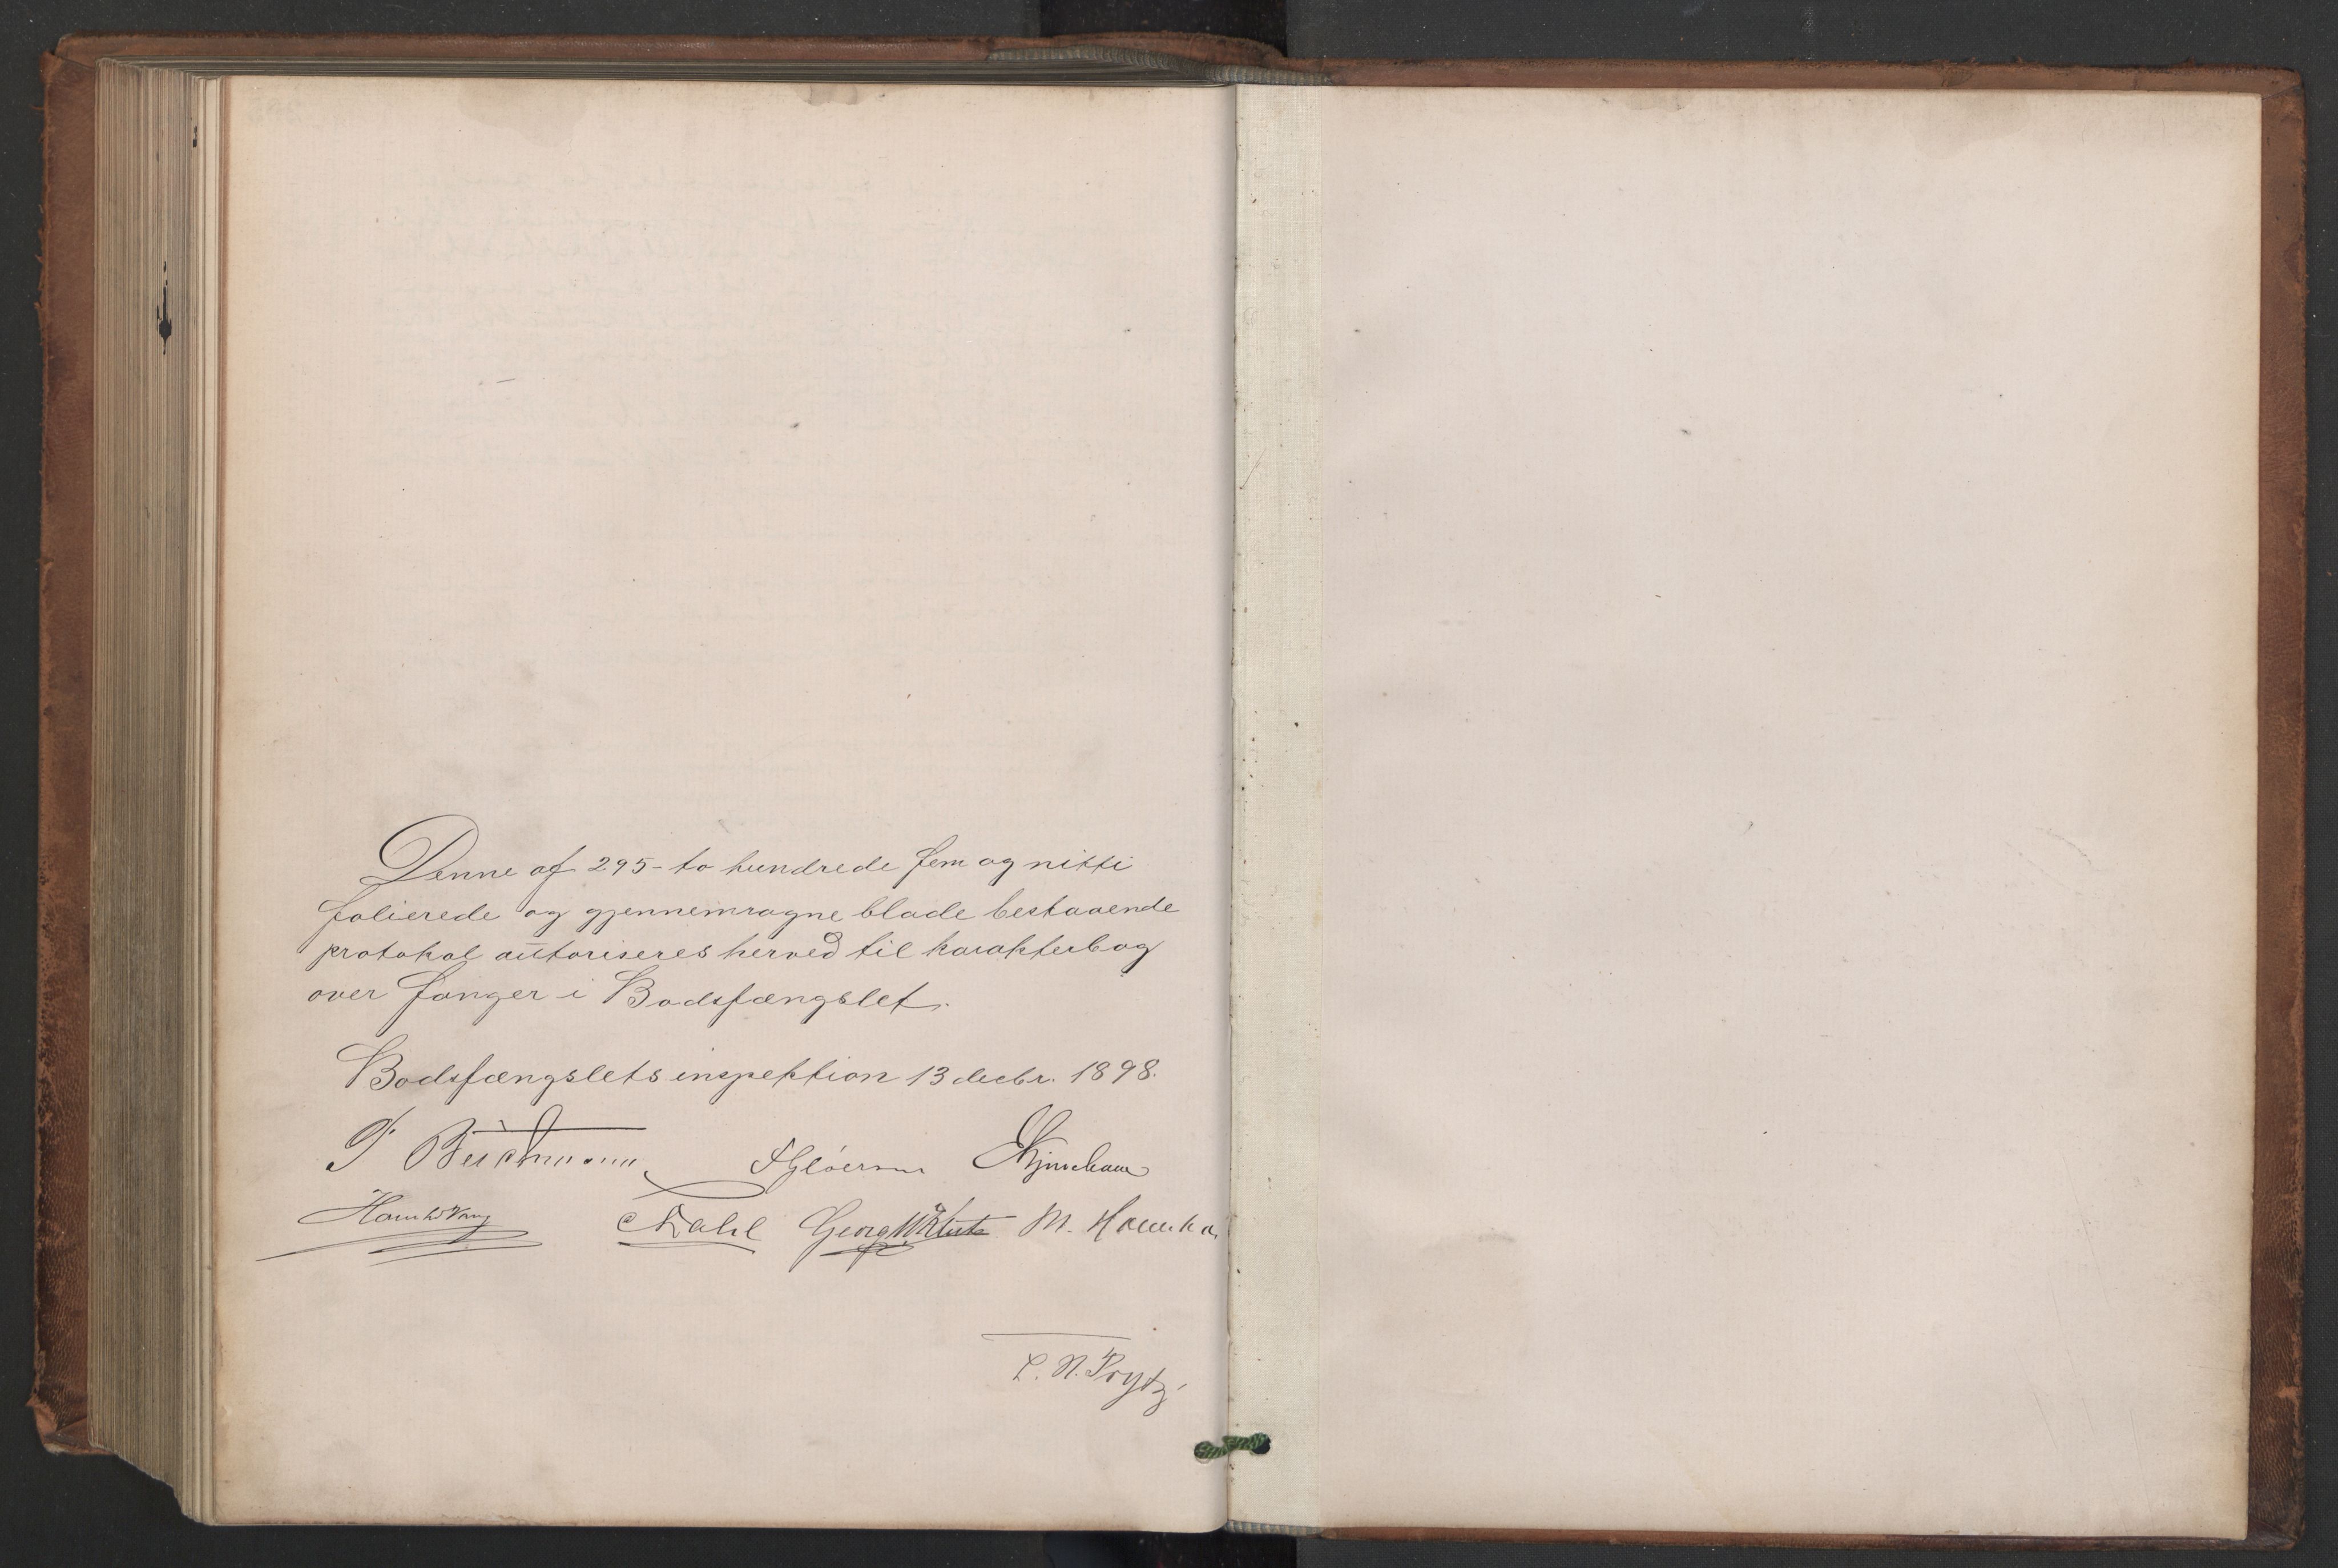 Denne af 295 - to hundrede fem og nitti
folierede og gjennemragne blade bestaaende
protokol autoriseres herved til karakterbog
over fanger i Bodsfængslet.
Bodsfængslets inspektion 13 decbr. 1898.
Dahl Georg M.
L. N. Prytz